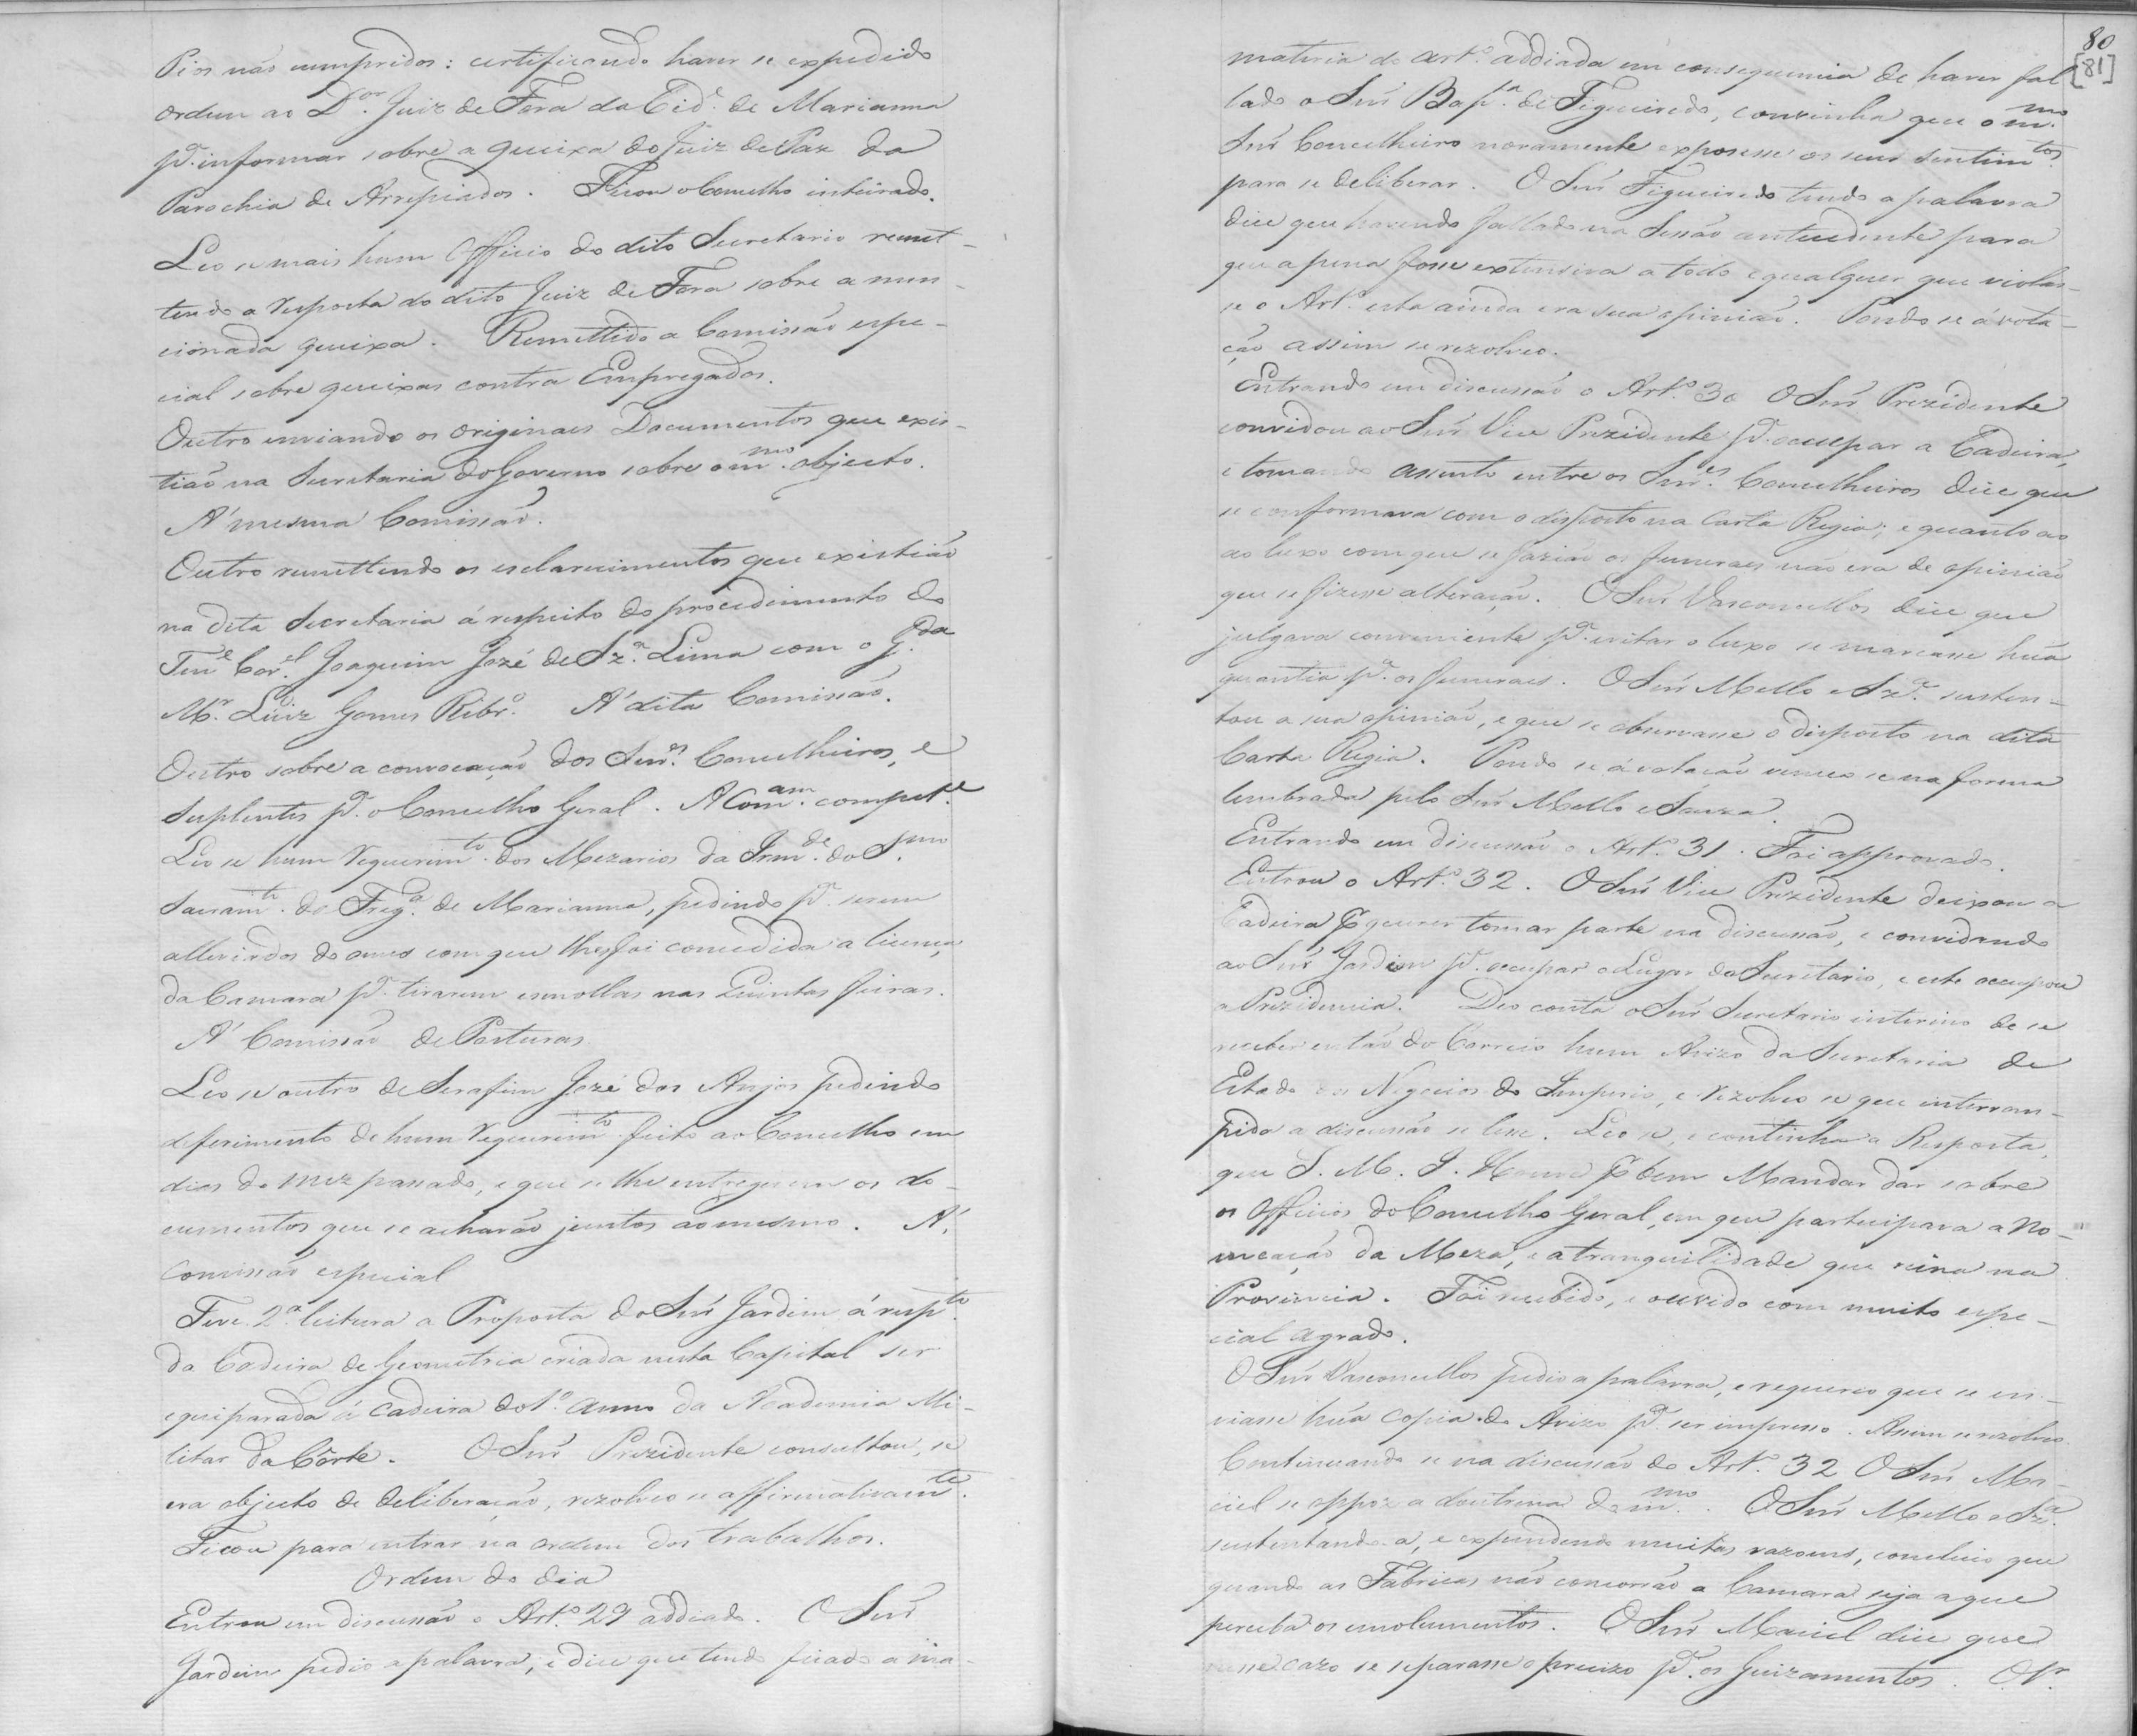 Pios não cumpridos: certificando haver se expedido
ordem ao D.or Juiz de Fora da Cid.e de Marianna
p.a informar sobre a queixa do Juiz de Paz da
Parochia de Arrepiados. Ficou o Concelho inteirado.
Leo se mais hum Officio do dito Secretario remet-
tendo a resposta do dito Juiz de Fora sobre a men-
cionada queixa. Remettido a Comissão espe-
cial sobre queixas contra Empregados.
Outro enviando os originaes Documentos que exis-
tião na Secretaria do Governo sobre o m.mo objecto.
A' mesma Comissão.
Outro remettendo os esclarecimentos que existião
na dita Secretaria á respeito do procedimento do
Ten.e Cor.el Joaquim Jozé de Sz.a Lima com o G.da
M.r Luiz Gomes Ribr.o A' dita Comissão.
Outro sobre a convocação dos Snr.es Concelheiros, e
Suplentes p.a o Concelho Geral. A Com.am compet.e
Leo se hum requerim.to dos Mezarios da Irm.de do S.mo
Sacram.to da Freg.a de Marianna, pedindo p.a serem
alleviados do onus com que lhes foi concedida a licença
da Camara p.a tirarem esmollas nas Quintas feiras.
A' Comissão de Posturas.
Leo se outro de Serafim Jozé dos Anjos pedindo
deferimento de hum requerim.to feito ao Concelho em
dias do mez passado, e que se lhe entreguem os do-
cumentos que se acharão juntos ao mesmo. A'
Comissão especial
Teve 2.a leitura a Proposta do Snr Jardim á resp.to
da Cadeira de Geometria criada nesta Capital ser
equiparada á cadeira do 1.o anno da Academia Mi-
litar da Côrte. O Snr Prezidente consultou, se
era objecto de deliberação, rezolveo se affirmativam.te
Ficou para entrar na ordem dos trabalhos.
Ordem do dia
Entrou em discussão o Art.o 29 addiado. O Snr
Jardim pedio a palavra, e dice que tendo ficado a ma-
80
[81]
materia do art.o addiada em consequencia de haver fal
lado o Snr Bap.ta de Figueiredo, convinha que o m.mo
Snr Concelheiro novamente exposesse os seus sentim.tos
para se deliberar. O Snr Figueiredo tendo a palavra
dice que havendo fallado na Sessão antecedente para
que a pena fosse extensiva a todo e qualquer que violas-
se o Art.o esta ainda era sua opinião. Pondo se á vota-
ção assim se rezolveo.
Entrando em discussão o Art.o 30 O Snr Prezidente
convidou ao Snr Vice Prezidente p.a occupar a Cadeira,
e tomando assento entre os Snr.es Concelheiros dice que
se conformava com o disposto na Carta Regia; e quanto ao
ao luxo com que se fazião os funeraes não era de opinião
que se fizesse alteração. O Snr Vasconcellos dice que
julgava conveniente p.a evitar o luxo se marcasse hũa
quantia p.a os funeraes. O Snr Mello e Sz.a susten-
tou a sua opinião, e que se observasse o disposto na dita
Carta Regia. Pondo se á votação venceo se na forma
lembrada pelo Snr Mello e Souza.
Entrando em discussão o Art.o 31. Foi approvado.
Entrou o Art.o 32. O Snr Vice Prezidente deixou a
Cadeira p querer tomar parte na discussão, e convidando
ao Snr Jardim p.a occupar o Lugar do Secretario, e este occupou
a Prezidencia. Deo conta o Snr Secretario interino de se
receber então do Correio hum Avizo da Secretaria de
Estado dos Negocios do Imperio, e rezolveo se que interrom-
pida a discussão se lesse. Leo se, e continha a Resposta,
que S. M. I. Houve p bem Mandar dar sobre
os Officios do Concelho Geral em que participava a No-
meação da Meza, e a tranquilidade que reina na
Provincia. Foi recebido, e ouvido com muito espe-
cial agrado.
O Snr Vasconcellos pedio a palavra, e requereo que se en-
viasse hũa copia do Avizo p.a ser impresso. Assim se rezolveo.
Continuando se na discussão do Art.o 32 O Snr Ma-
ciel se oppoz a doutrina do m.mo. O Snr Mello e Sz.a
sustentando-a, e expendendo muitas razoens, concluio que
quando as Fabricas não concorrão a Camara seja a que
perceba os emolumentos. O Snr Maciel dice que
nesse cazo se separasse o precizo p.a os Guizamentos. O S.r